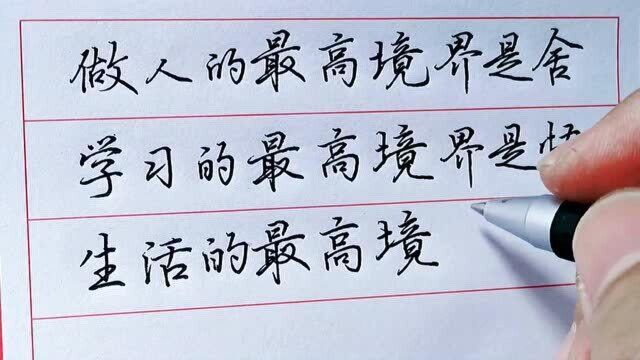 做人的最高境界是舍
学习的最高境界是悟
生活的最高境